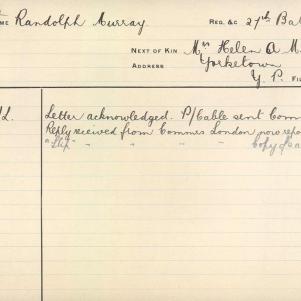 ME Randolph Murray REG. &C 27th Ba
NEXT OF KIN Mrs Helen A M
ADDRESS Yorketown
Y. P.
Letter acknowledged. P/Cable sent Com
Reply received from Commrs London now repo
"Slip" " " " " Copy of